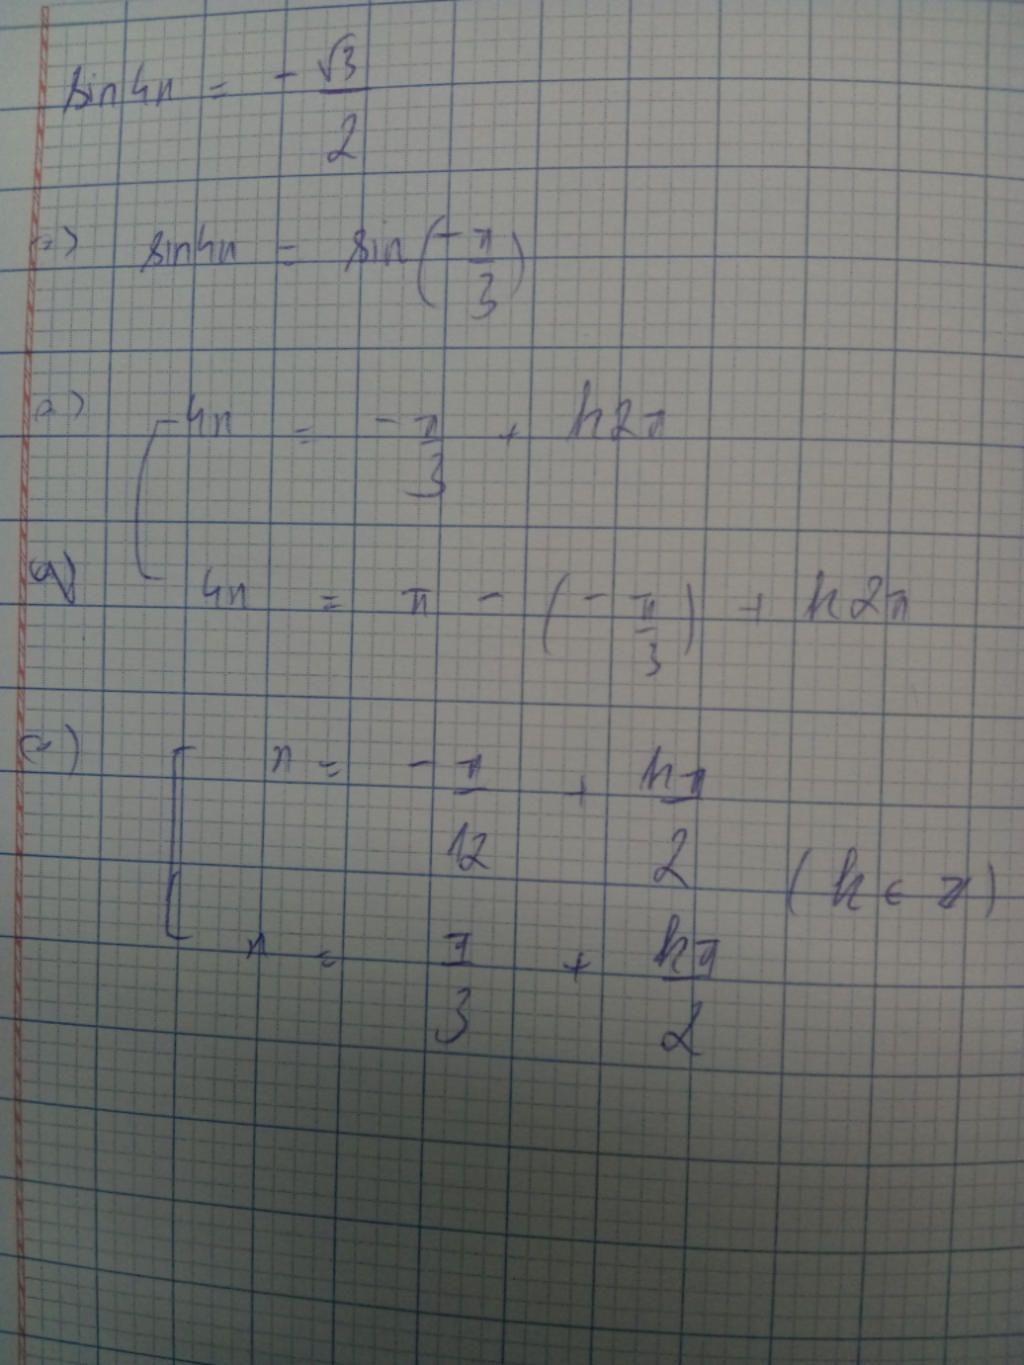 sin4x = - √3/2
=> sin4x = sin(-π/3)
=> [ 4x = -π/3 + k2π
4x = π - (-π/3) + k2π
=> [ x = -π/12 + kπ/2
(k ∈ Z)
x = π/3 + kπ/2